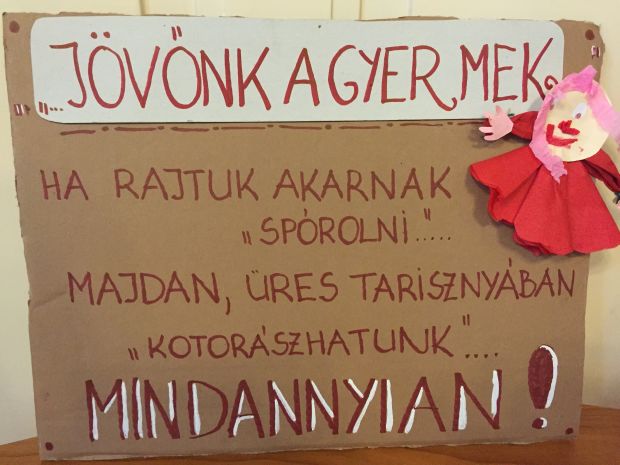 „...JÖVŐNK A GYERMEK„
HA RAJTUK AKARNAK
„SPÓROLNI"....
MAJDAN, ÜRES TARISZNYÁBAN
„KOTORÁSZHATUNK"....
MINDANNYIAN!